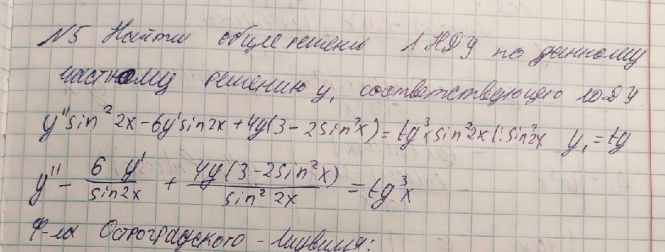 N5 Найти общее решени ЛНДУ по данному
частному решению y₁ соответствующего ЛОДУ
y'' sin² 2x - 6y' sin2x + 4y(3 - 2sin²x) = tg³x sin²2x |: sin²2x y₁ = tg
y'' - 6 y' / sin2x + 4y(3 - 2sin²x) / sin² 2x = tg³x
Ф-ла Остроградского - Лиувилля: